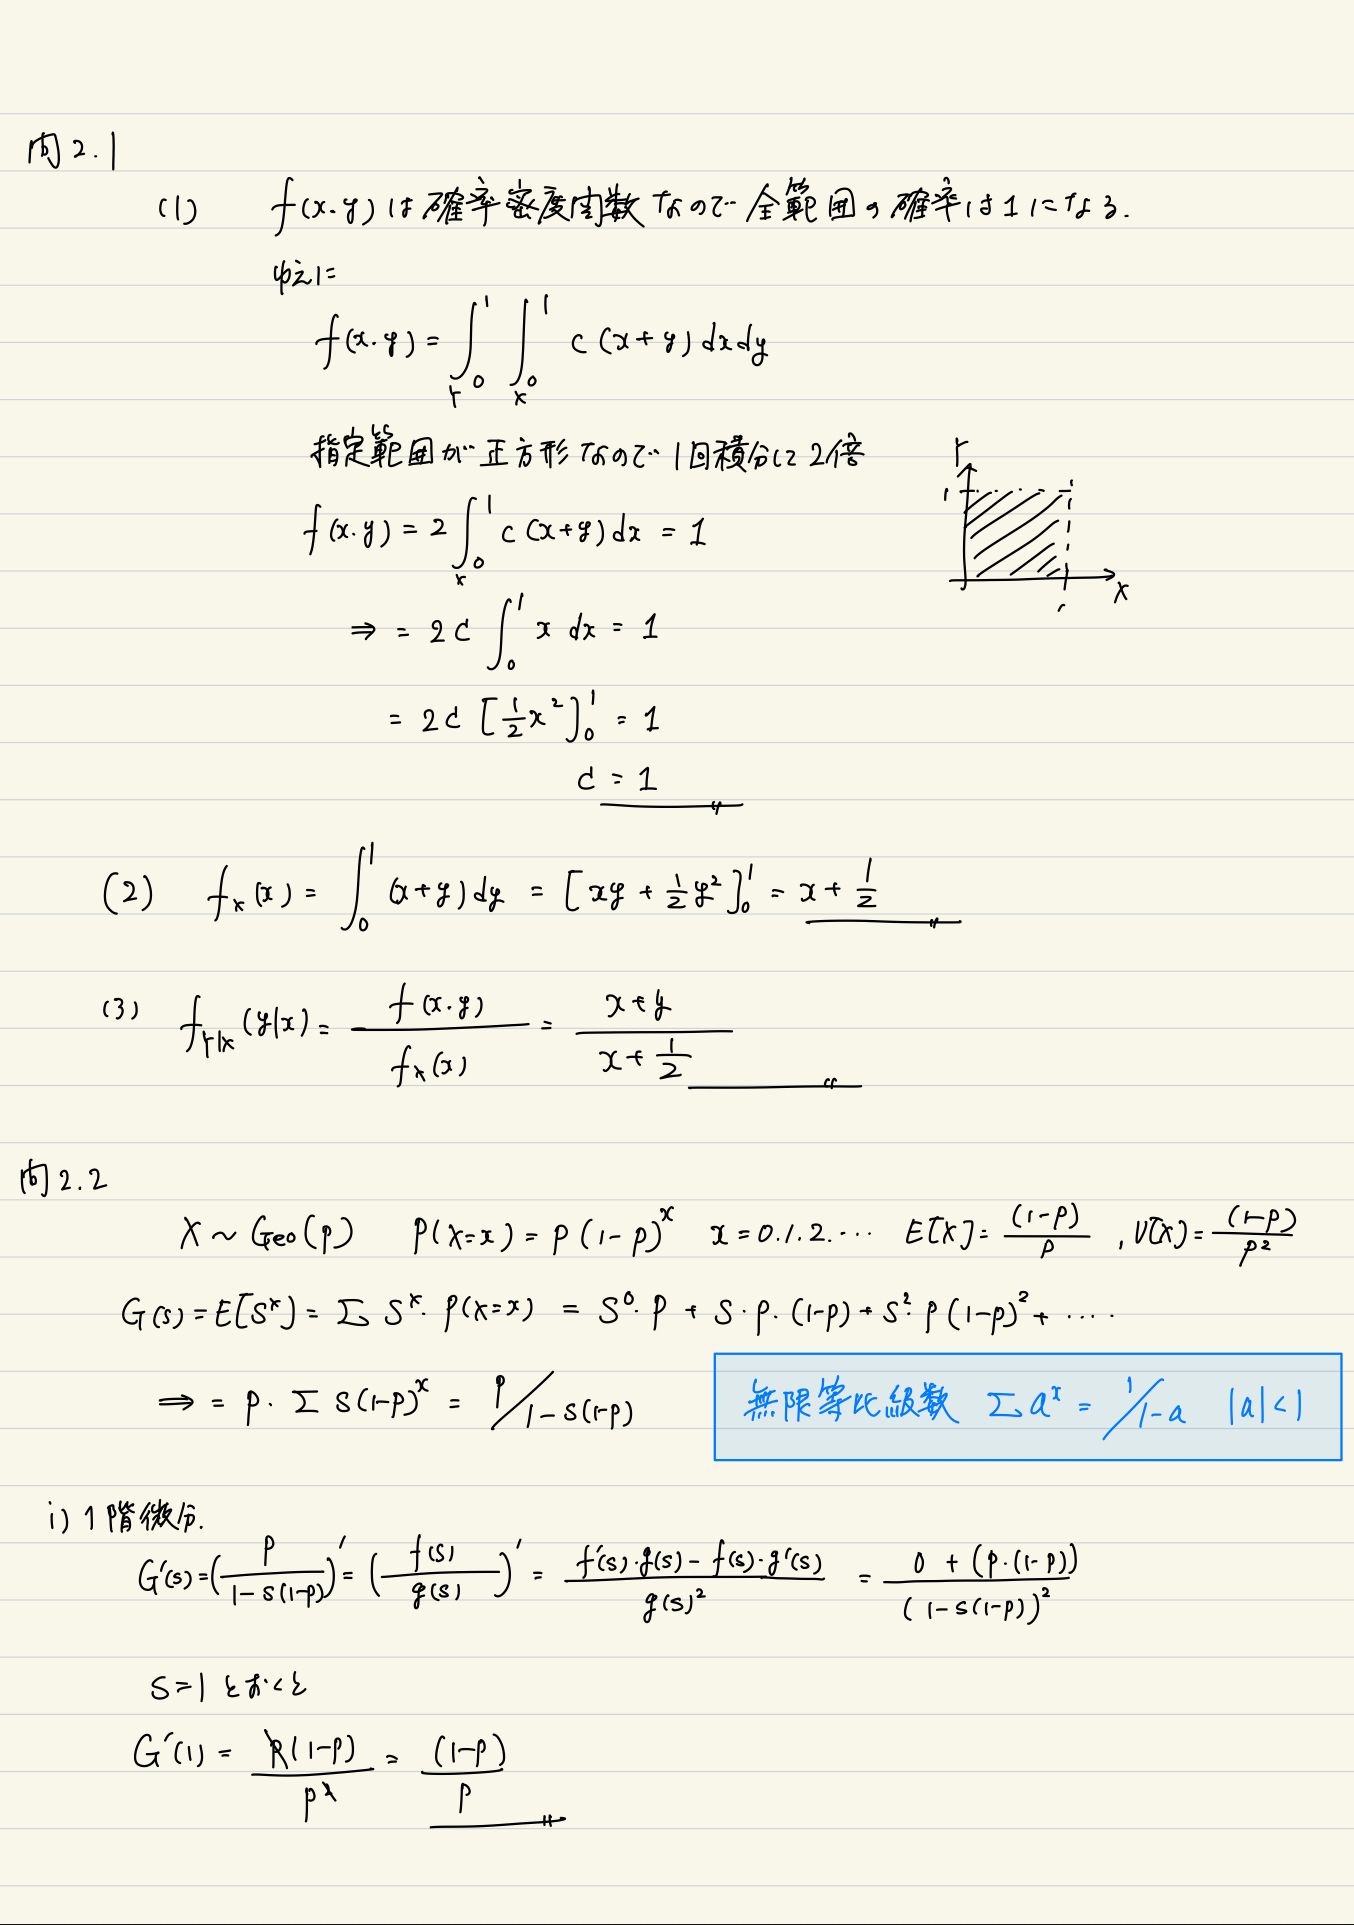 問2.1
(1) f(x.y)は確率密度関数なので全範囲の確率は1になる.
ゆえに
f(x.y) = ∫_Y 0^1 ∫_X 0^1 c(x+y)dxdy
指定範囲が正方形なので1回積分に2倍
Y
1
1
X
1
f(x.y) = 2∫_X 0^1 c(x+y)dx = 1
⇒ = 2c ∫_0^1 x dx = 1
= 2c [1/2 x^2]_0^1 = 1
c = 1
(2) f_X(x) = ∫_0^1 (x+y)dy = [xy + 1/2 y^2]_0^1 = x + 1/2
(3) f_Y|X(y|x) = f(x.y) / f_X(x) = (x+y) / (x + 1/2)
問2.2
X ~ Geo(p) P(X=x) = p(1-p)^x x=0.1.2.… E[X] = (1-p)/p , V[X] = (1-p)/p^2
G(s) = E[S^X] = Σ S^x・P(X=x) = S^0・p + S・p・(1-p) + S^2・p(1-p)^2 + ‥‥
⇒ = p・Σ S(1-p)^x = p/1-s(1-p)
無限等比級数 Σa^x = 1/1-a |a|<1
i) 1階微分.
G'(s) = (p / 1-s(1-p))' = (f(s) / g(s))' = f'(s)・g(s) - f(s)・g'(s) / g(s)^2 = 0 + (p・(1-p)) / (1-s(1-p))^2
S=1 とおくと
G'(1) = p(1-p) / p^2 = (1-p) / p